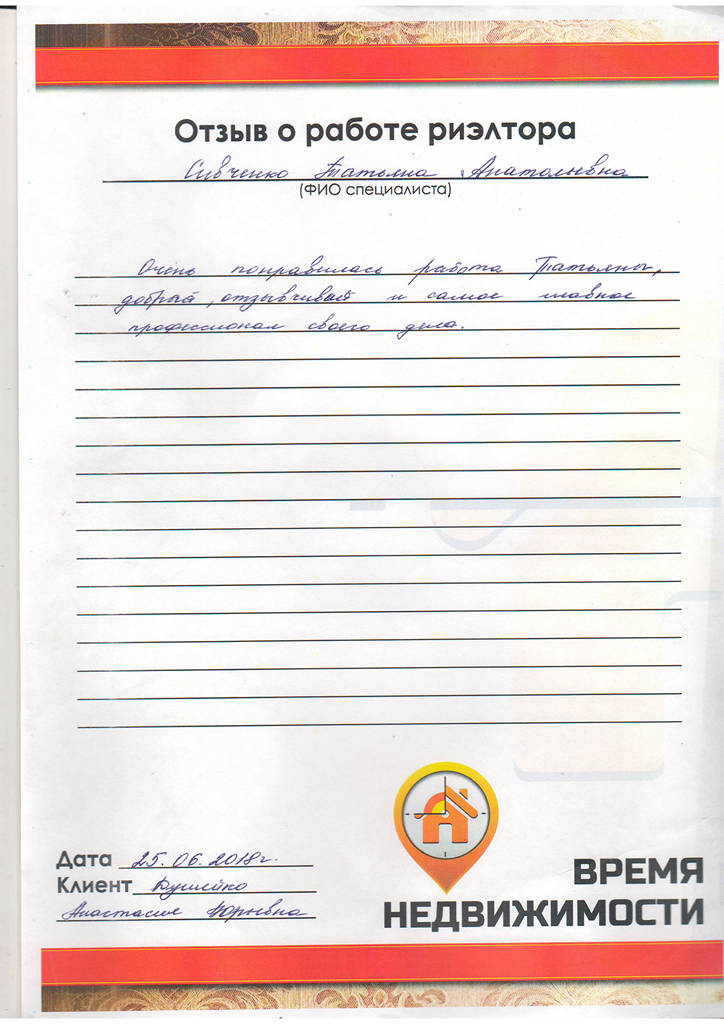 Отзыв о работе риэлтора
Сивченко Татьяна Анатольевна
(ФИО специалиста)
Очень понравилась работа Татьяны,
добрый, отзывчивый и самое главное
профессионал своего дела.
Дата 25.06.2018г.
Клиент
Анастасия Юрьевна
ВРЕМЯ
НЕДВИЖИМОСТИ